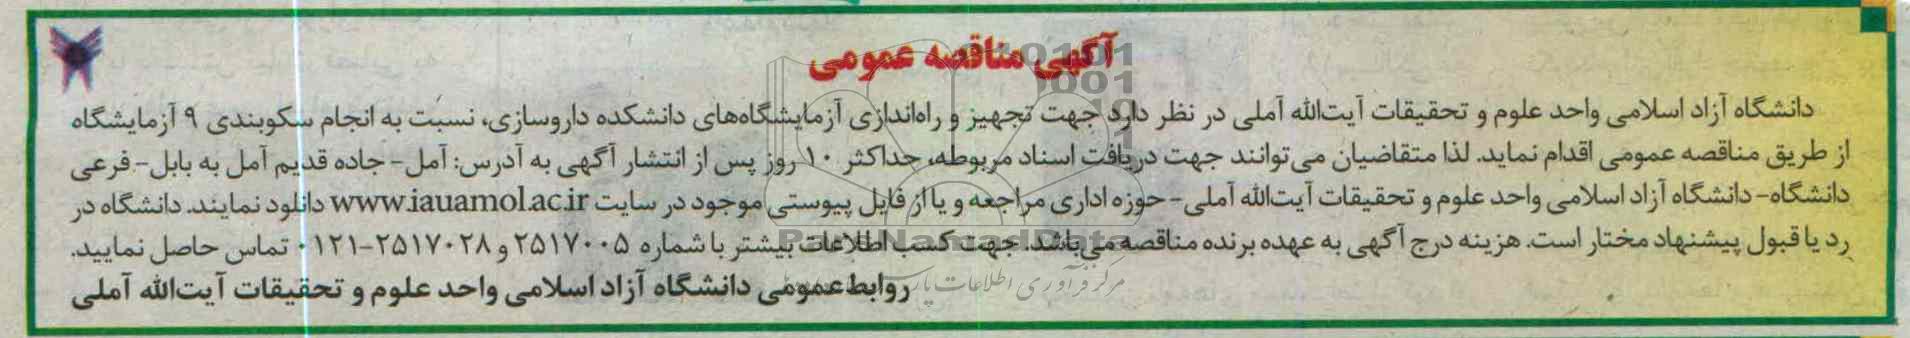 آگهی مناقصه عمومی
دانشگاه آزاد اسلامی واحد علوم و تحقیقات آیت‌الله آملی در نظر دارد جهت تجهیز و راه‌اندازی آزمایشگاه‌های دانشکده داروسازی، نسبت به انجام سکوبندی ۹ آزمایشگاه
از طریق مناقصه عمومی اقدام نماید. لذا متقاضیان می‌توانند جهت دریافت اسناد مربوطه، حداکثر ۱۰ روز پس از انتشار آگهی به آدرس: آمل - جاده قدیم آمل به بابل- فرعی
دانشگاه- دانشگاه آزاد اسلامی واحد علوم و تحقیقات آیت‌الله آملی - حوزه اداری مراجعه و یا از فایل پیوستی موجود در سایت www.iauamol.ac.ir دانلود نمایند. دانشگاه در
رد یا قبول پیشنهاد مختار است. هزینه درج آگهی به عهده برنده مناقصه می‌باشد. جهت کسب اطلاعات بیشتر با شماره ۲۵۱۷۰۰۵ و ۲۵۱۷۰۲۸-۰۱۲۱ تماس حاصل نمایید.
روابط عمومی دانشگاه آزاد اسلامی واحد علوم و تحقیقات آیت‌الله آملی